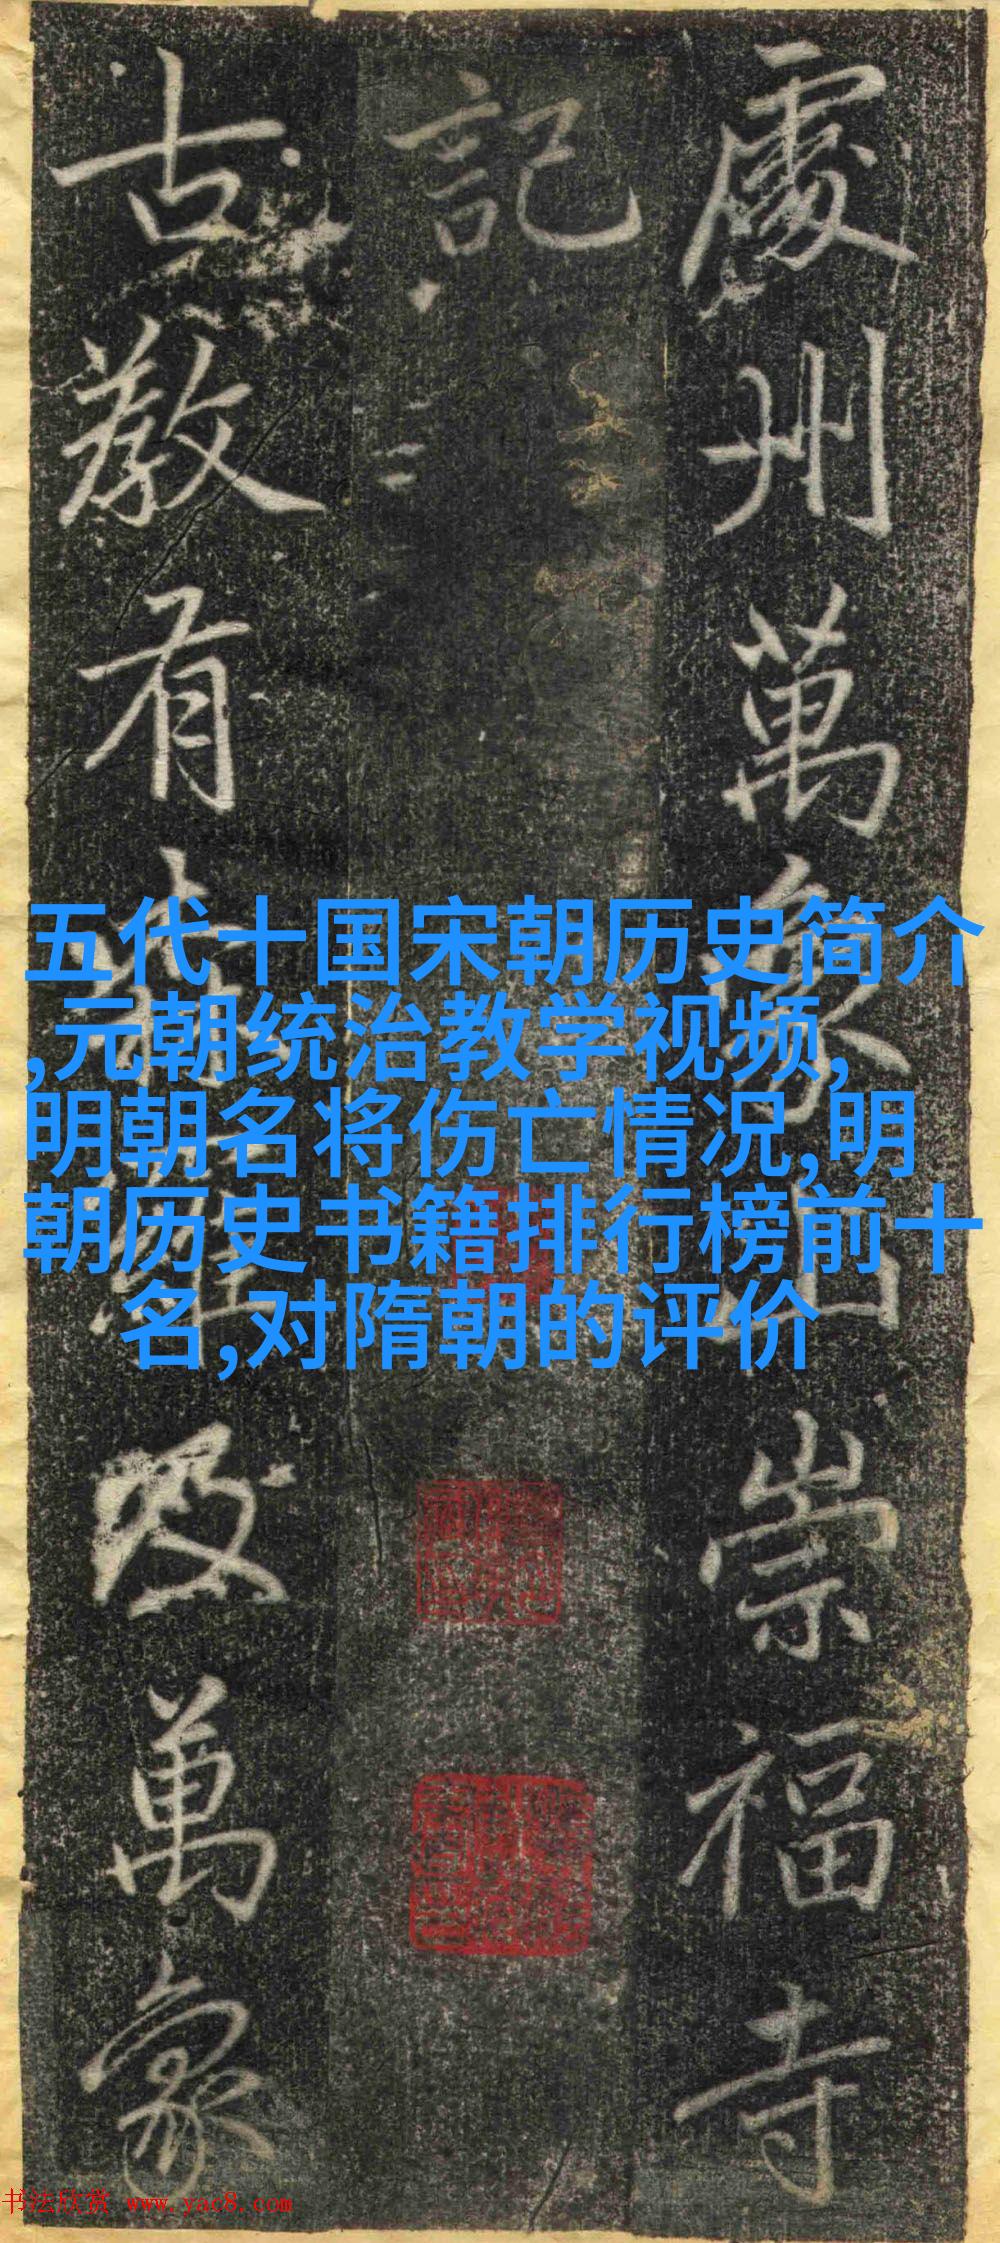 處州萬象山崇福寺
記
古教有
萬象
五代十国宋朝历史简介
,元朝统治教学视频,
明朝名将伤亡情况,明
朝历史书籍排行榜前十
名,对隋朝的评价
书法欣赏 www.yac8.com